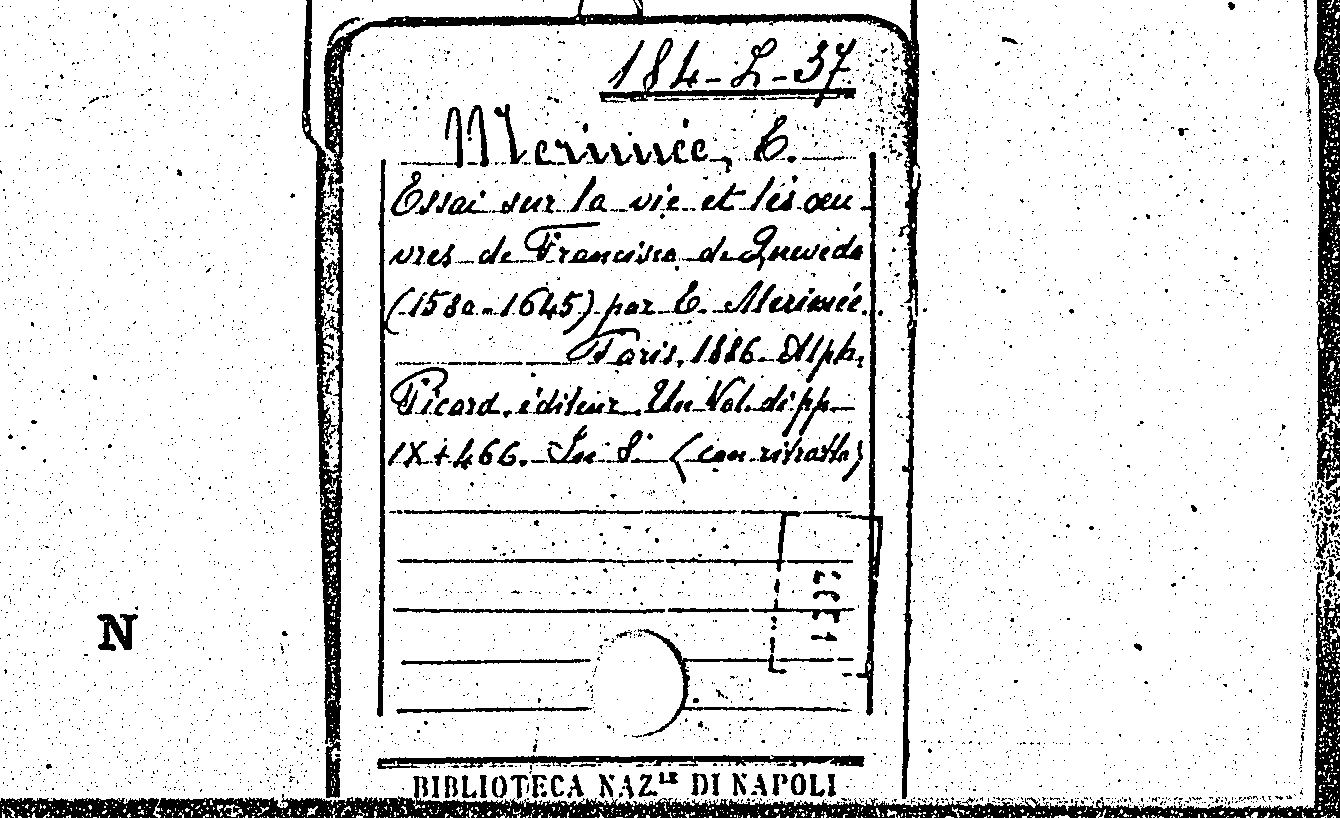 184-L-37
Merimée, E.
Essai sur la vie et les œu-
vres de Francisco de Quevedo
(1580-1645) par E. Merimée.
Paris, 1886. Alph.
Picard, éditeur. Un Vol. di pp.
IX+466. In 8° (con ritratto)
N
BIBLIOTECA NAZ.LE DI NAPOLI